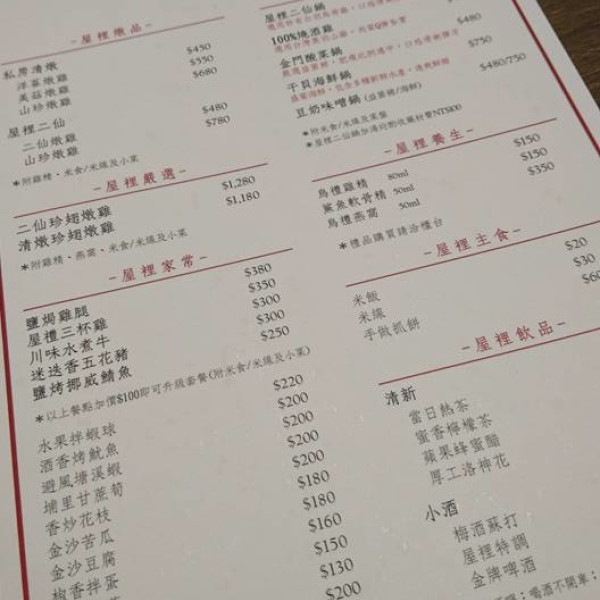 -屋裡燉品-
私房清燉
洋蔘燉雞 $450
美菇燉雞 $550
山珍燉雞 $680
屋裡二仙
二仙燉雞 $480
山珍燉雞 $780
*附雞精、米食/米線及小菜
-屋裡嚴選-
二仙珍翅燉雞 $1,280
清燉珍翅燉雞 $1,180
*附雞精、燕窩、米食/米線及小菜
-屋裡家常-
鹽焗雞腿 $380
屋禮三杯雞 $350
川味水煮牛 $300
迷迭香五花豬 $300
鹽烤挪威鯖魚 $250
*以上餐點加價$100即可升級套餐(附米食/米線及小菜)
水果拌蝦球 $220
酒香烤魷魚 $200
避風塘溪蝦 $200
埔里甘蔗筍 $200
香炒花枝 $180
金沙苦瓜 $180
金沙豆腐 $160
椒香拌蛋 $150
$130
$200
屋裡二仙鍋
100%燒酒雞
金門酸菜鍋 $480
干貝海鮮鍋 $750
豆奶味噌鍋 (蔬菜豬/海鮮) $480/750
*附米食/米線及菜盤
*屋裡二仙鍋加湯均酌收藥材費NT$100
-屋裡養生-
烏禮雞精 80ml $150
鯊魚軟骨精 50ml $150
烏禮燕窩 50ml $350
*禮品購買請洽櫃台
-屋裡主食-
米飯 $20
米線 $30
手做抓餅
-屋裡飲品-
清新
當日熱茶
蜜香檸檬茶
蘋果蜂蜜醋
厚工洛神花
小酒
梅酒蘇打
屋裡特調
金牌啤酒
喝酒不開車